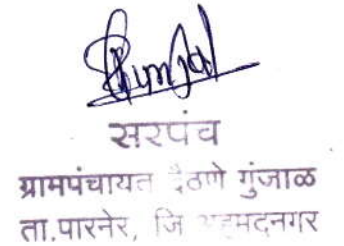 सरपंच
ग्रामपंचायत दैठणे गुंजाळ
ता.पारनेर, जि अहमदनगर